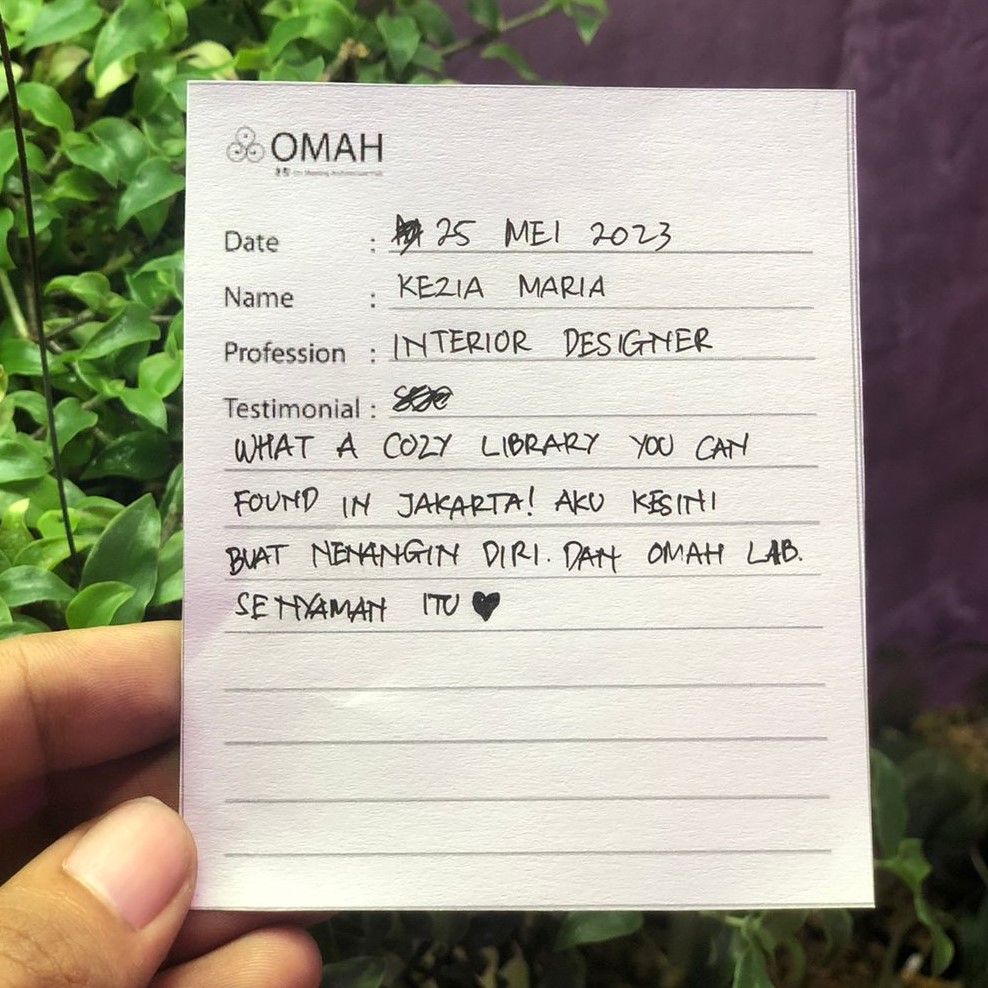 OMAH
Date : 25 MEI 2023
Name : KEZIA MARIA
Profession : INTERIOR DESIGNER
Testimonial :
WHAT A COZY LIBRARY YOU CAN
FOUND IN JAKARTA! AKU KESINI
BUAT NENANGIN DIRI. DAN OMAH LAB.
SENYAMAN ITU ♥